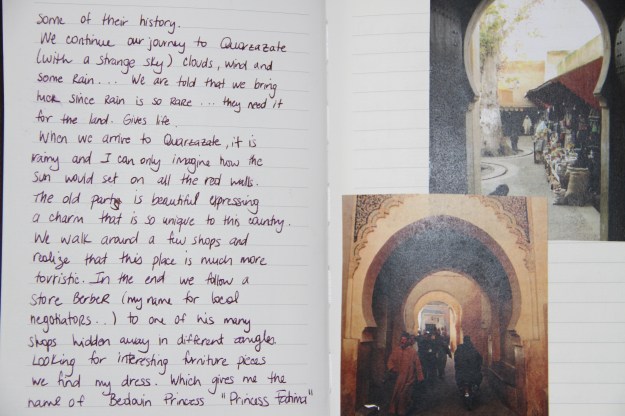 some of their history.
We continue our journey to Quarzazate
(with a strange sky) clouds, wind and
some Rain.... We are told that we bring
luck since Rain is so Rare... they need it
for the land. Gives life.
When we arrive to Quarzazate, it is
rainy and I can only imagine how the
sun would set on all the red walls.
The old party is beautiful expressing
a charm that is so unique to this country.
We walk around a few shops and
realize that this place is much more
touristic. In the end we follow a
store BerbeR (my name for local
negotiators..) to one of his many
shops hidden away in different angles.
Looking for interesting furniture pieces
we find my dress. Which gives me the
name of Bedouin Princess "Princess Fatima"